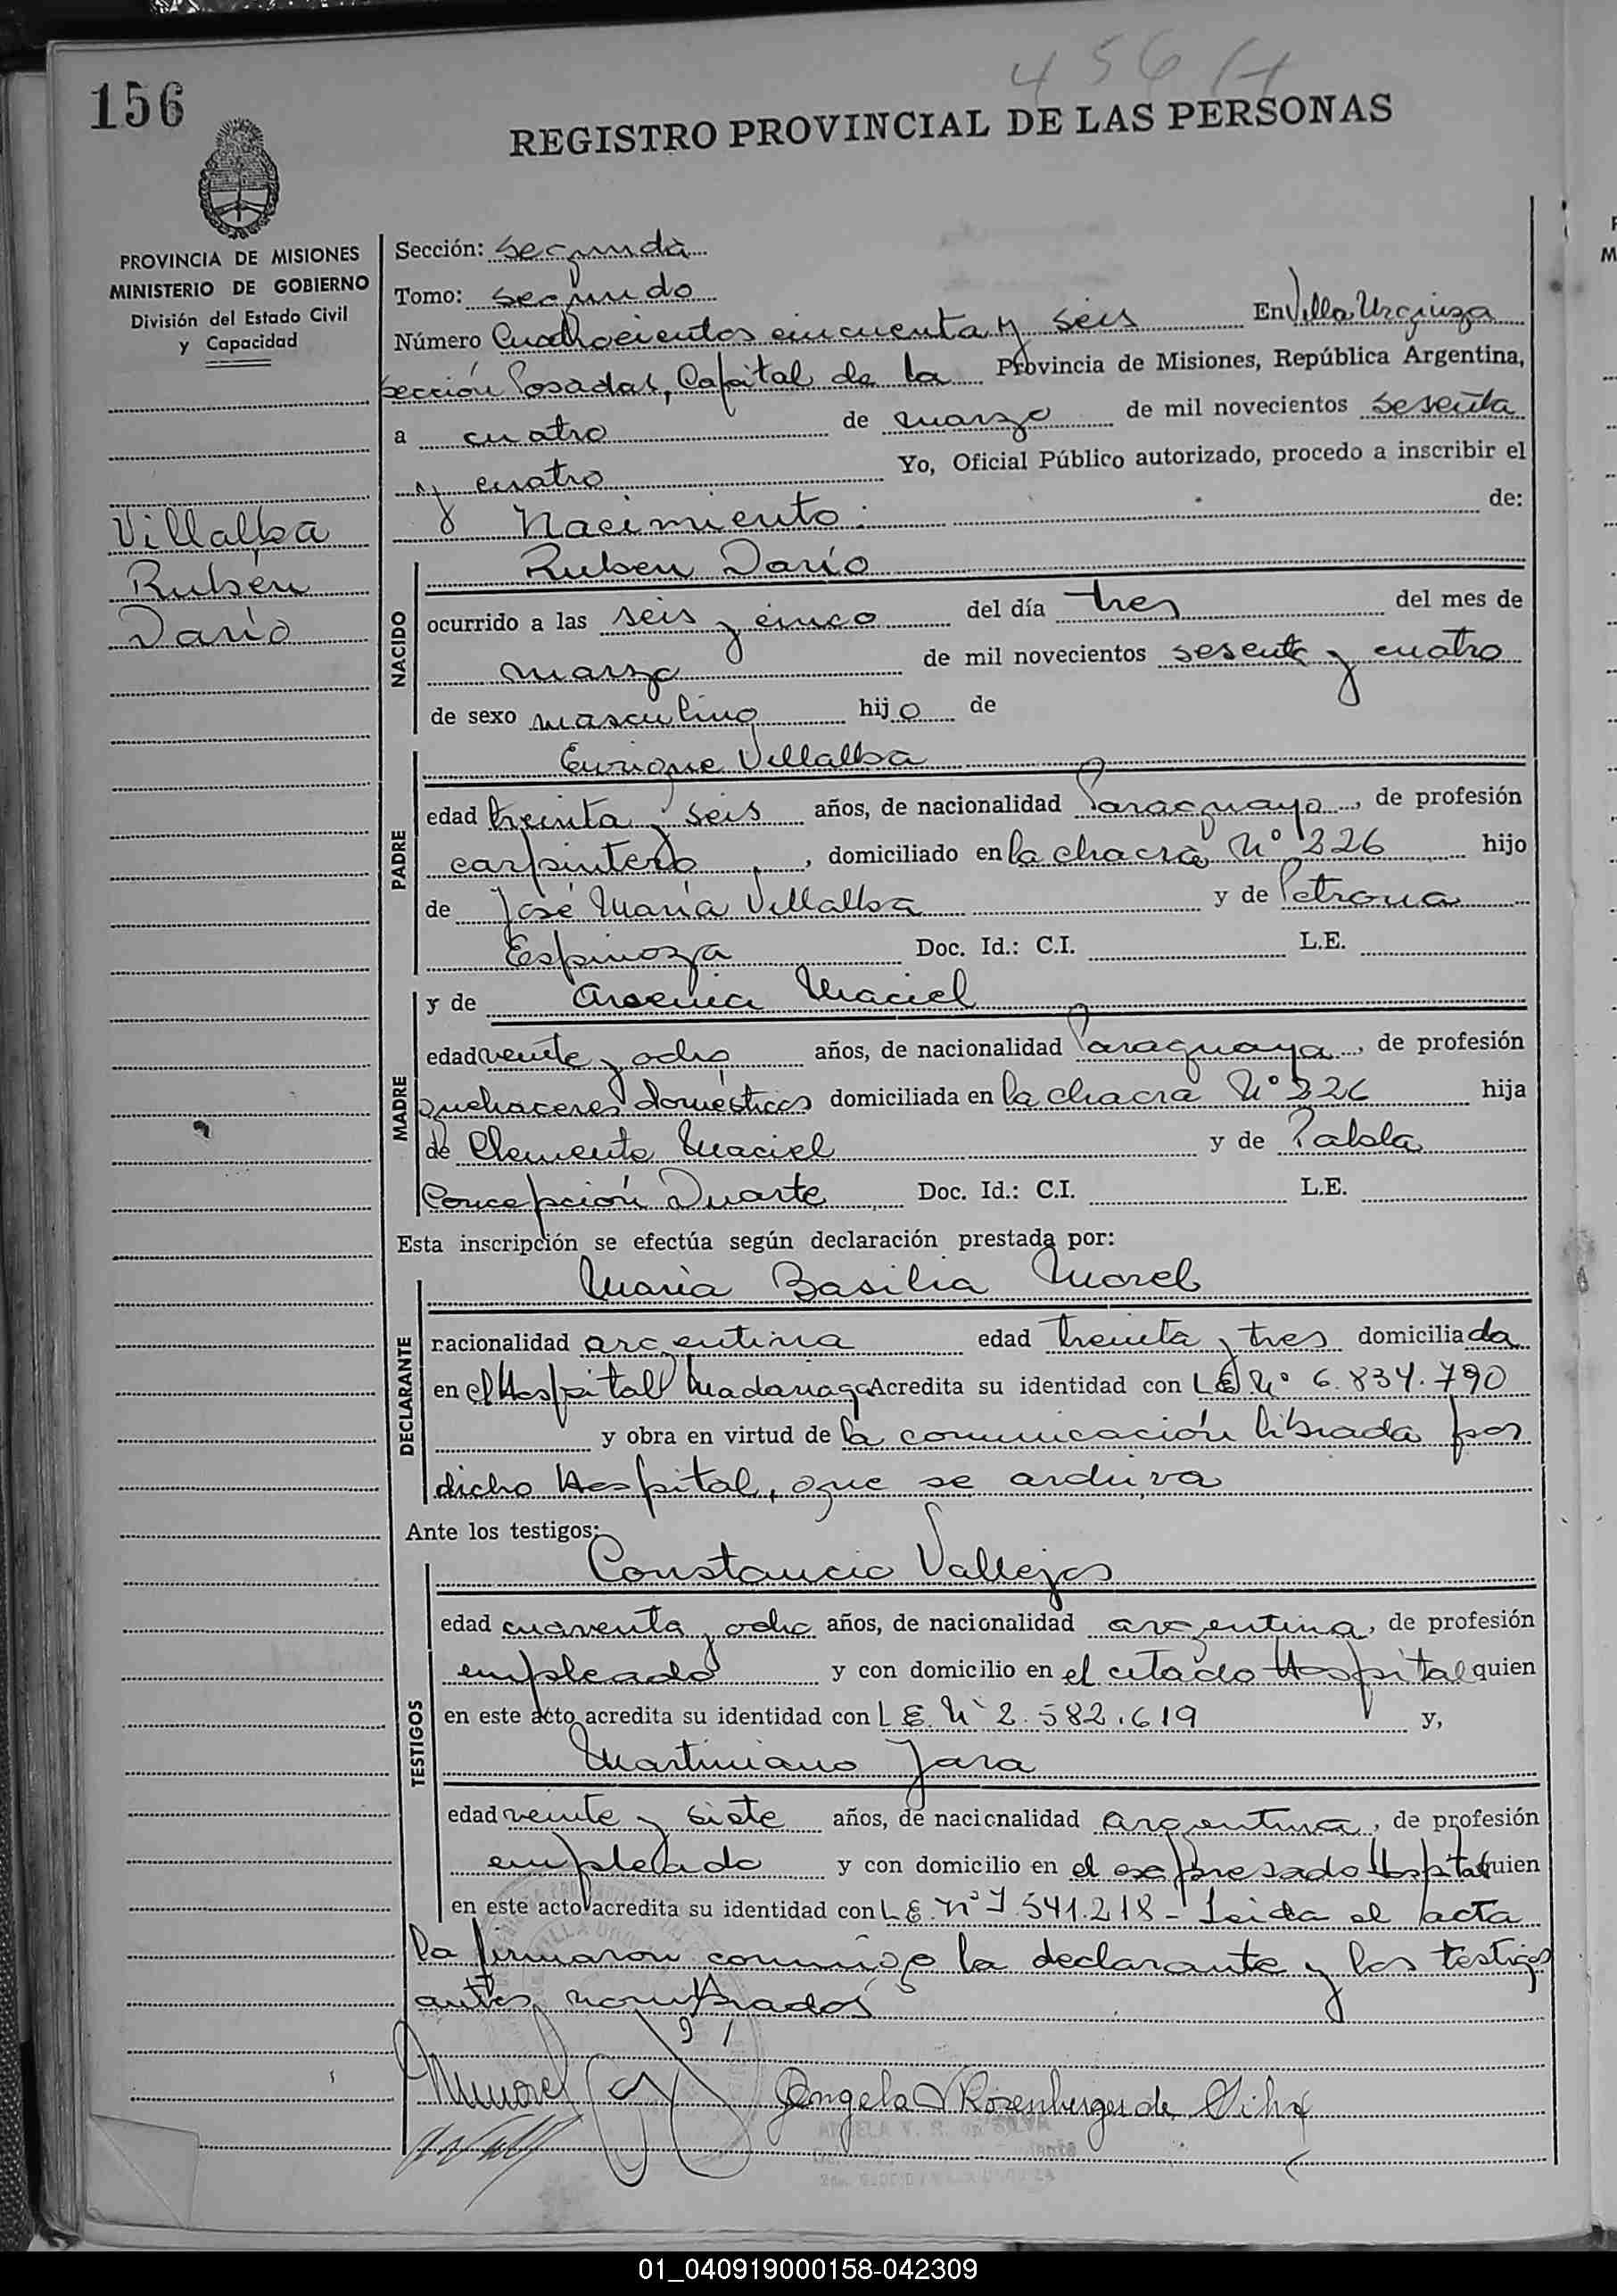 456 H
156
REGISTRO PROVINCIAL DE LAS PERSONAS
PROVINCIA DE MISIONES
MINISTERIO DE GOBIERNO
División del Estado Civil
y Capacidad
Villalba
Rubén
Darío
Sección: segunda
Tomo: segundo
Número Cuatrocientos cincuenta y seis En Villa Urquiza
sección Posadas, Capital de la Provincia de Misiones, República Argentina,
a cuatro de marzo de mil novecientos sesenta
y cuatro Yo, Oficial Público autorizado, procedo a inscribir el
Nacimiento: de:
NACIDO
Ruben Darío
ocurrido a las seis y cinco del día tres del mes de
marzo de mil novecientos sesenta y cuatro
de sexo masculino hijo de
PADRE
Enrique Villalba
edad treinta y seis años, de nacionalidad Paraguayo, de profesión
carpintero, domiciliado en la chacra Nº 226 hijo
de José María Villalba y de Petrona
Espinoza Doc. Id.: C.I. L.E.
MADRE
y de Arsenia Maciel
edad veinte y ocho años, de nacionalidad Paraguaya, de profesión
quehaceres domésticos domiciliada en la chacra Nº 226 hija
de Clemente Maciel y de Pabla
Concepción Duarte Doc. Id.: C.I. L.E.
Esta inscripción se efectúa según declaración prestada por:
DECLARANTE
María Basilia Morel
nacionalidad argentina edad treinta y tres domiciliada
en el Hospital Madariaga Acredita su identidad con L E Nº 6.834.790
y obra en virtud de la comunicación librada por
dicho Hospital, que se archiva
Ante los testigos:
TESTIGOS
Constancio Vallejos
edad cuarenta y ocho años, de nacionalidad argentina, de profesión
empleado y con domicilio en el citado Hospital quien
en este acto acredita su identidad con L E. Nº 2.582.619 y,
Martiniano Jara
edad veinte y siete años, de nacionalidad argentina, de profesión
empleado y con domicilio en el expresado Hospital quien
en este acto acredita su identidad con L E. Nº 7.541.218 - Leida el acta
la firmaron conmigo la declarante y los testigos
antes nombrados
MMorel
Angela V Rosenberger de Silva
ANGELA V. R. de SILVA
01_040919000158-042309